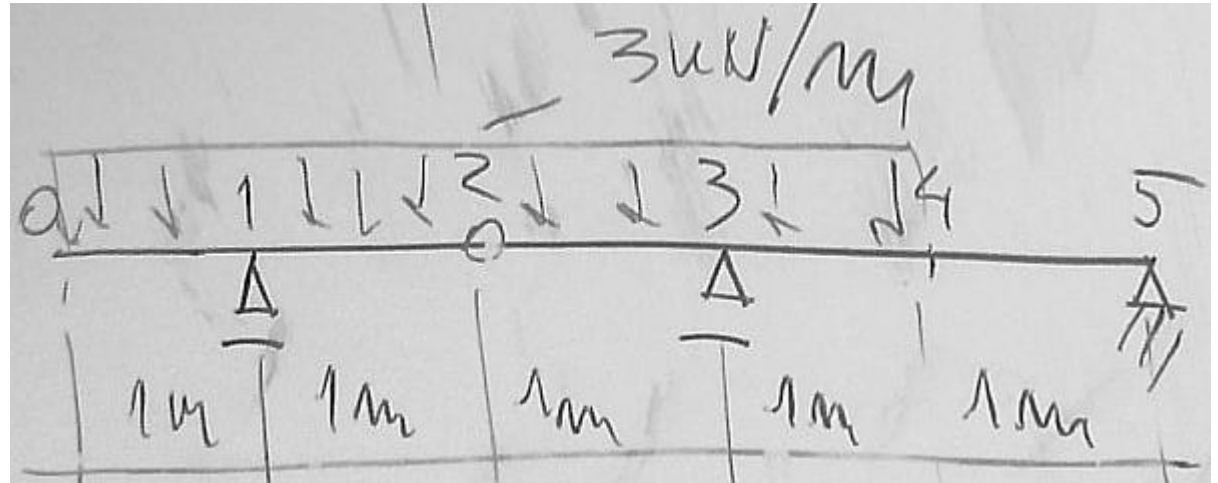 3kN/m
0 1 2 3 4 5
1m 1m 1m 1m 1m